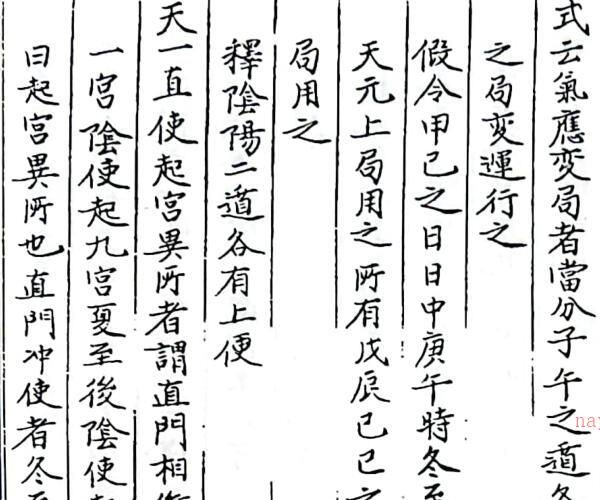 式云氣應变局者當分子午之道各
之局变運行之
假令甲己之日日中庚午時冬至
天元上局用之所有戊辰己巳之
局用之
釋陰陽二道各有上便
天一直使起宮異所者謂直門相衝
一宮陰使起九宮夏至後陰使起
曰起宮異所也直門冲使者冬至